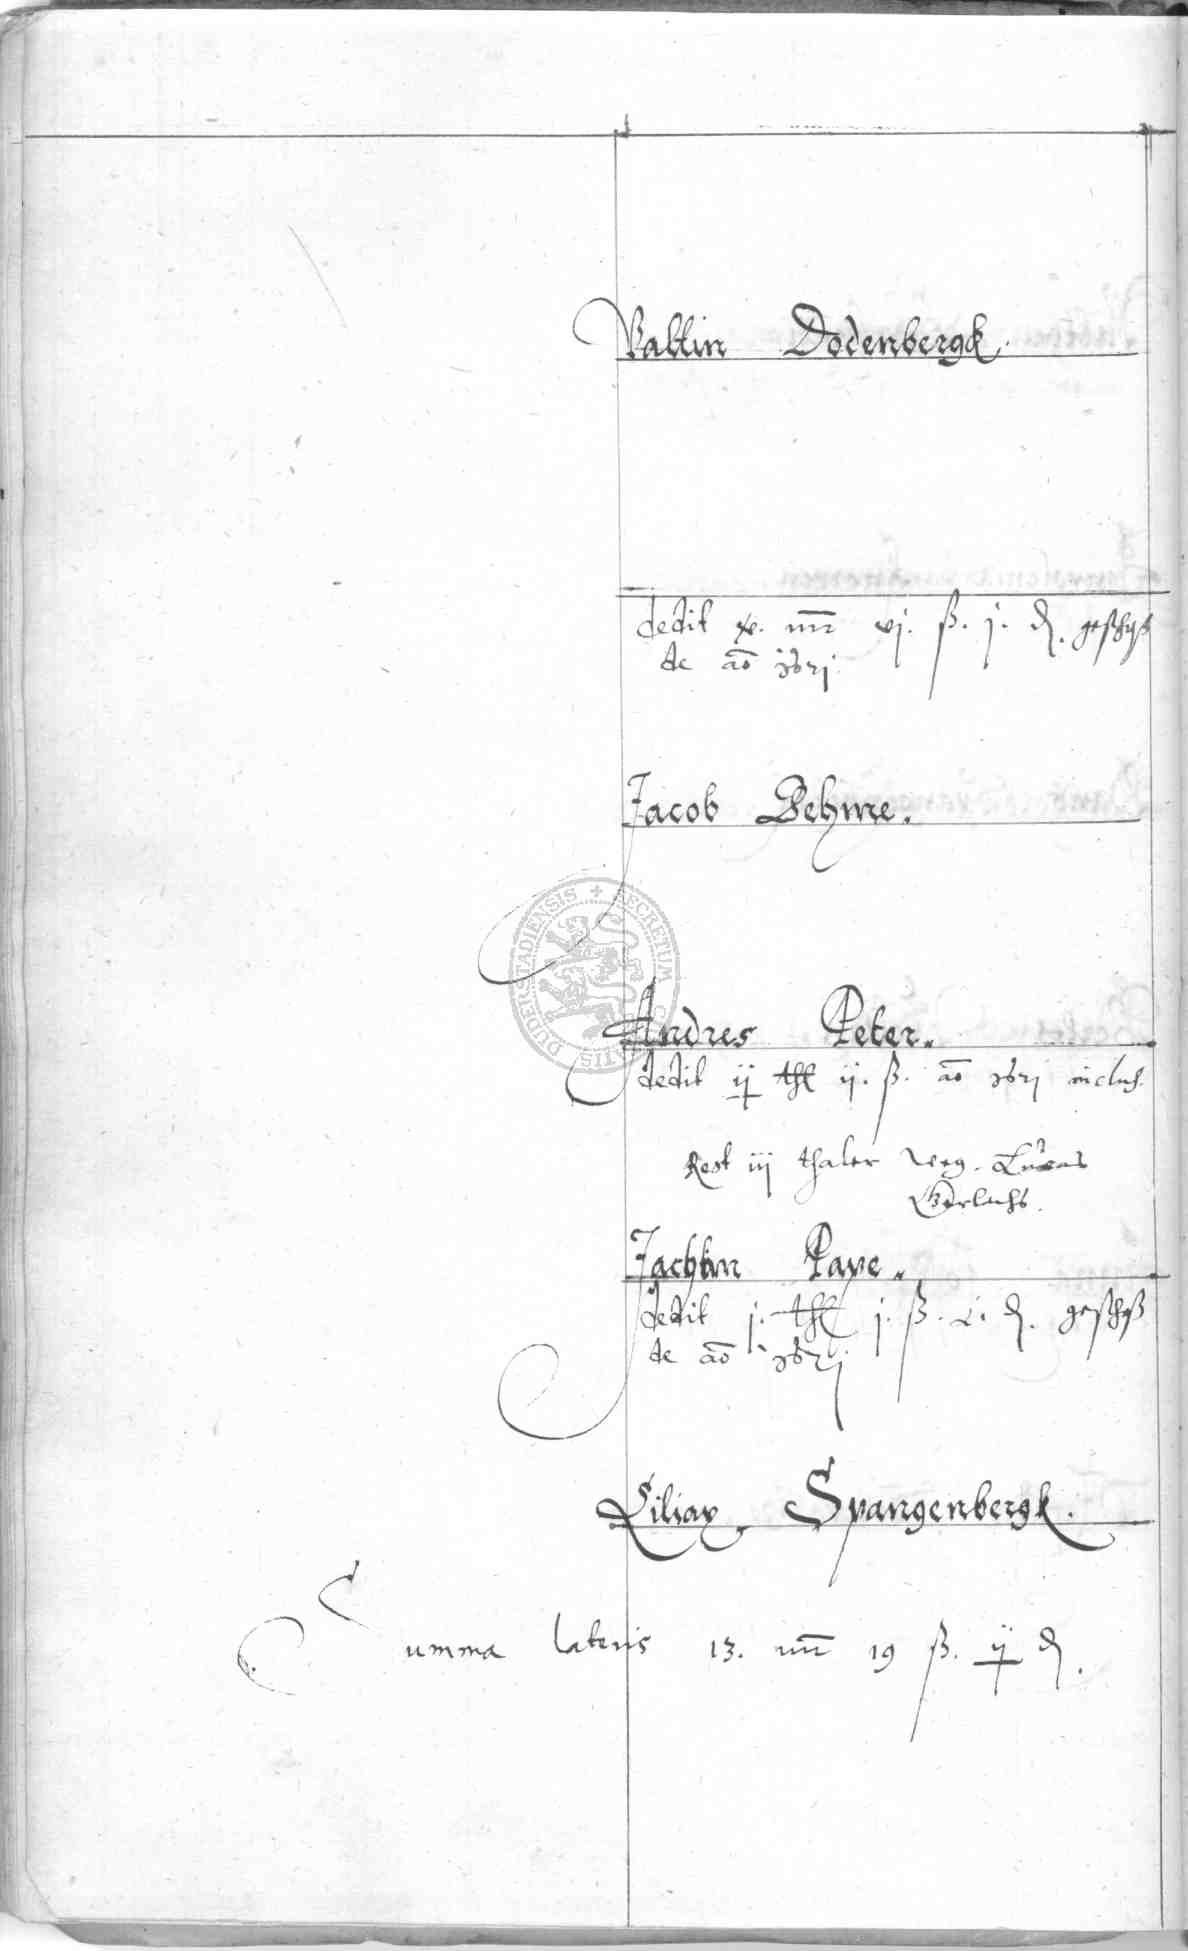 Valtin Dodenbergk.
dedit x. mr vj. ß. j. d. geschoß
de ao 1621
Jacob Behme.
Andres Peter.
dedit ij thl ij. ß. ao 1621 inclus.
Rest iij thaler weg. Lucas
Gerlachs.
Jachim Pape.
dedit j. thl j. ß. d. geschoß
de ao 1621
Liliax Spangenbergk.
Summa lateris 13. mr 19 ß. ij d.
SECRETUM CIVITATIS DUDERSTADIENSIS